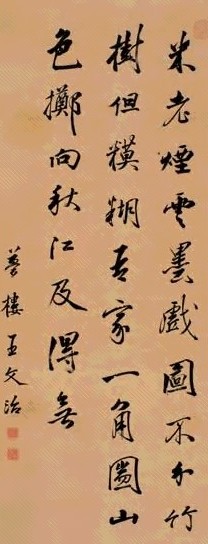 米老煙雲墨戲圖不分竹
樹但糢糊吾家一角圖山
色擲向秋江及得無
夢樓王文治